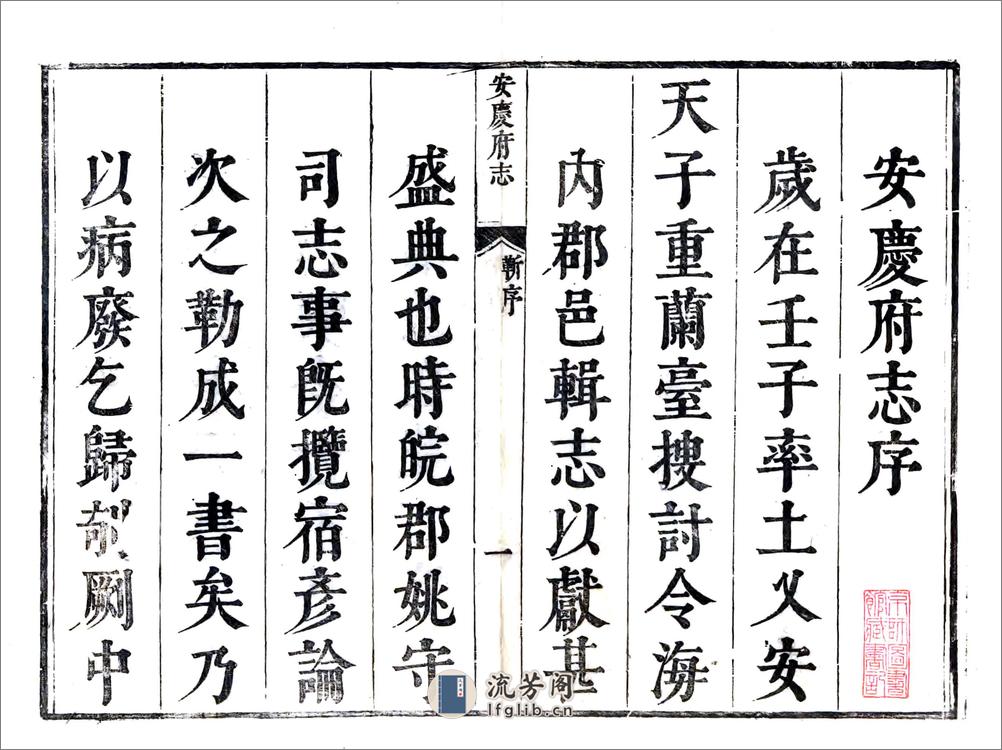 安慶府志序
歲在壬子率土乂安
天子重蘭臺搜討令海
内郡邑輯志以獻甚
安慶府志
靳序
一
盛典也時皖郡姚守
司志事旣攬宿彥論
次之勒成一書矣乃
以病廢乞歸剞劂中
京師圖書
館藏書記
流芳阁
lfglib.cn